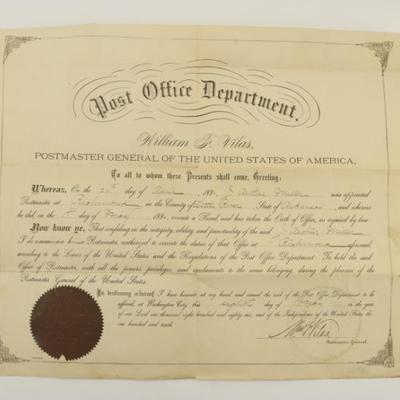 Post Office Department.
William F. Vilas,
POSTMASTER GENERAL OF THE UNITED STATES OF AMERICA,
To all to whom these Presents shall come, Greeting:
Whereas, On the day of 188, J. Arthur Miller was appointed
Postmaster at Richmond, in the County of Little River, State of Arkansas, and whereas
he did, on the 1st day of May 188, execute a Bond, and has taken the Oath of Office, as required by law:
Now know ye, That confiding in the integrity, ability and punctuality of the said J. Arthur Miller
I do commission him Postmaster, authorized to execute the duties of that Office at Richmond aforesaid,
according to the Laws of the United States and the Regulations of the Post Office Department: To hold the said
Office of Postmaster, with all the powers, privileges, and emoluments to the same belonging, during the pleasure of the
Postmaster General of the United States.
In testimony whereof, I have hereunto set my hand and caused the seal of the Post Office Department to be
affixed, at Washington City, this eighth day of May in the year
of our Lord one thousand eight hundred and eighty six, and of the Independence of the United States the
one hundred and tenth.
Wm F Vilas
Postmaster General.